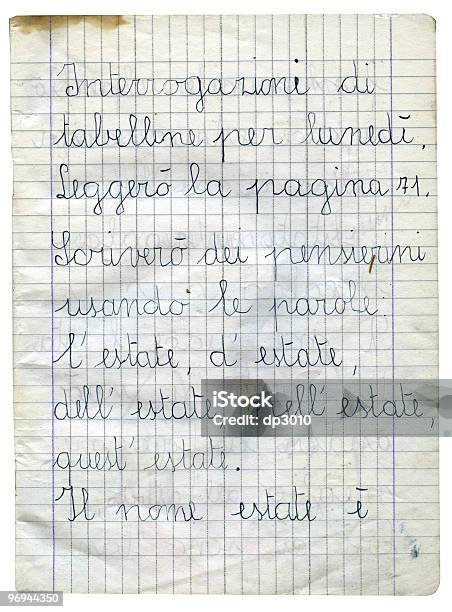 Interrogazioni di
tabelline per lunedì.
Leggerò la pagina 171.
Scriverò dei pensierini
usando le parole:
l'estate, d'estate,
dell'estate, nell'estate,
quest'estate.
Il nome estate è
iStock
Credit: dp3010
96944350